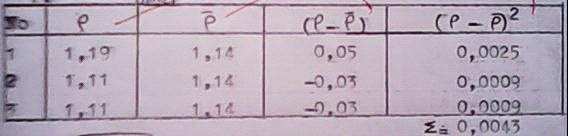 No ρ ρ̄ (ρ-ρ̄) (ρ - ρ̄)²
1 1,19 1,14 0,05 0,0025
2 1,11 1,14 -0,03 0,0009
3 1,11 1,14 -0,03 0,0009
Σ= 0,0043